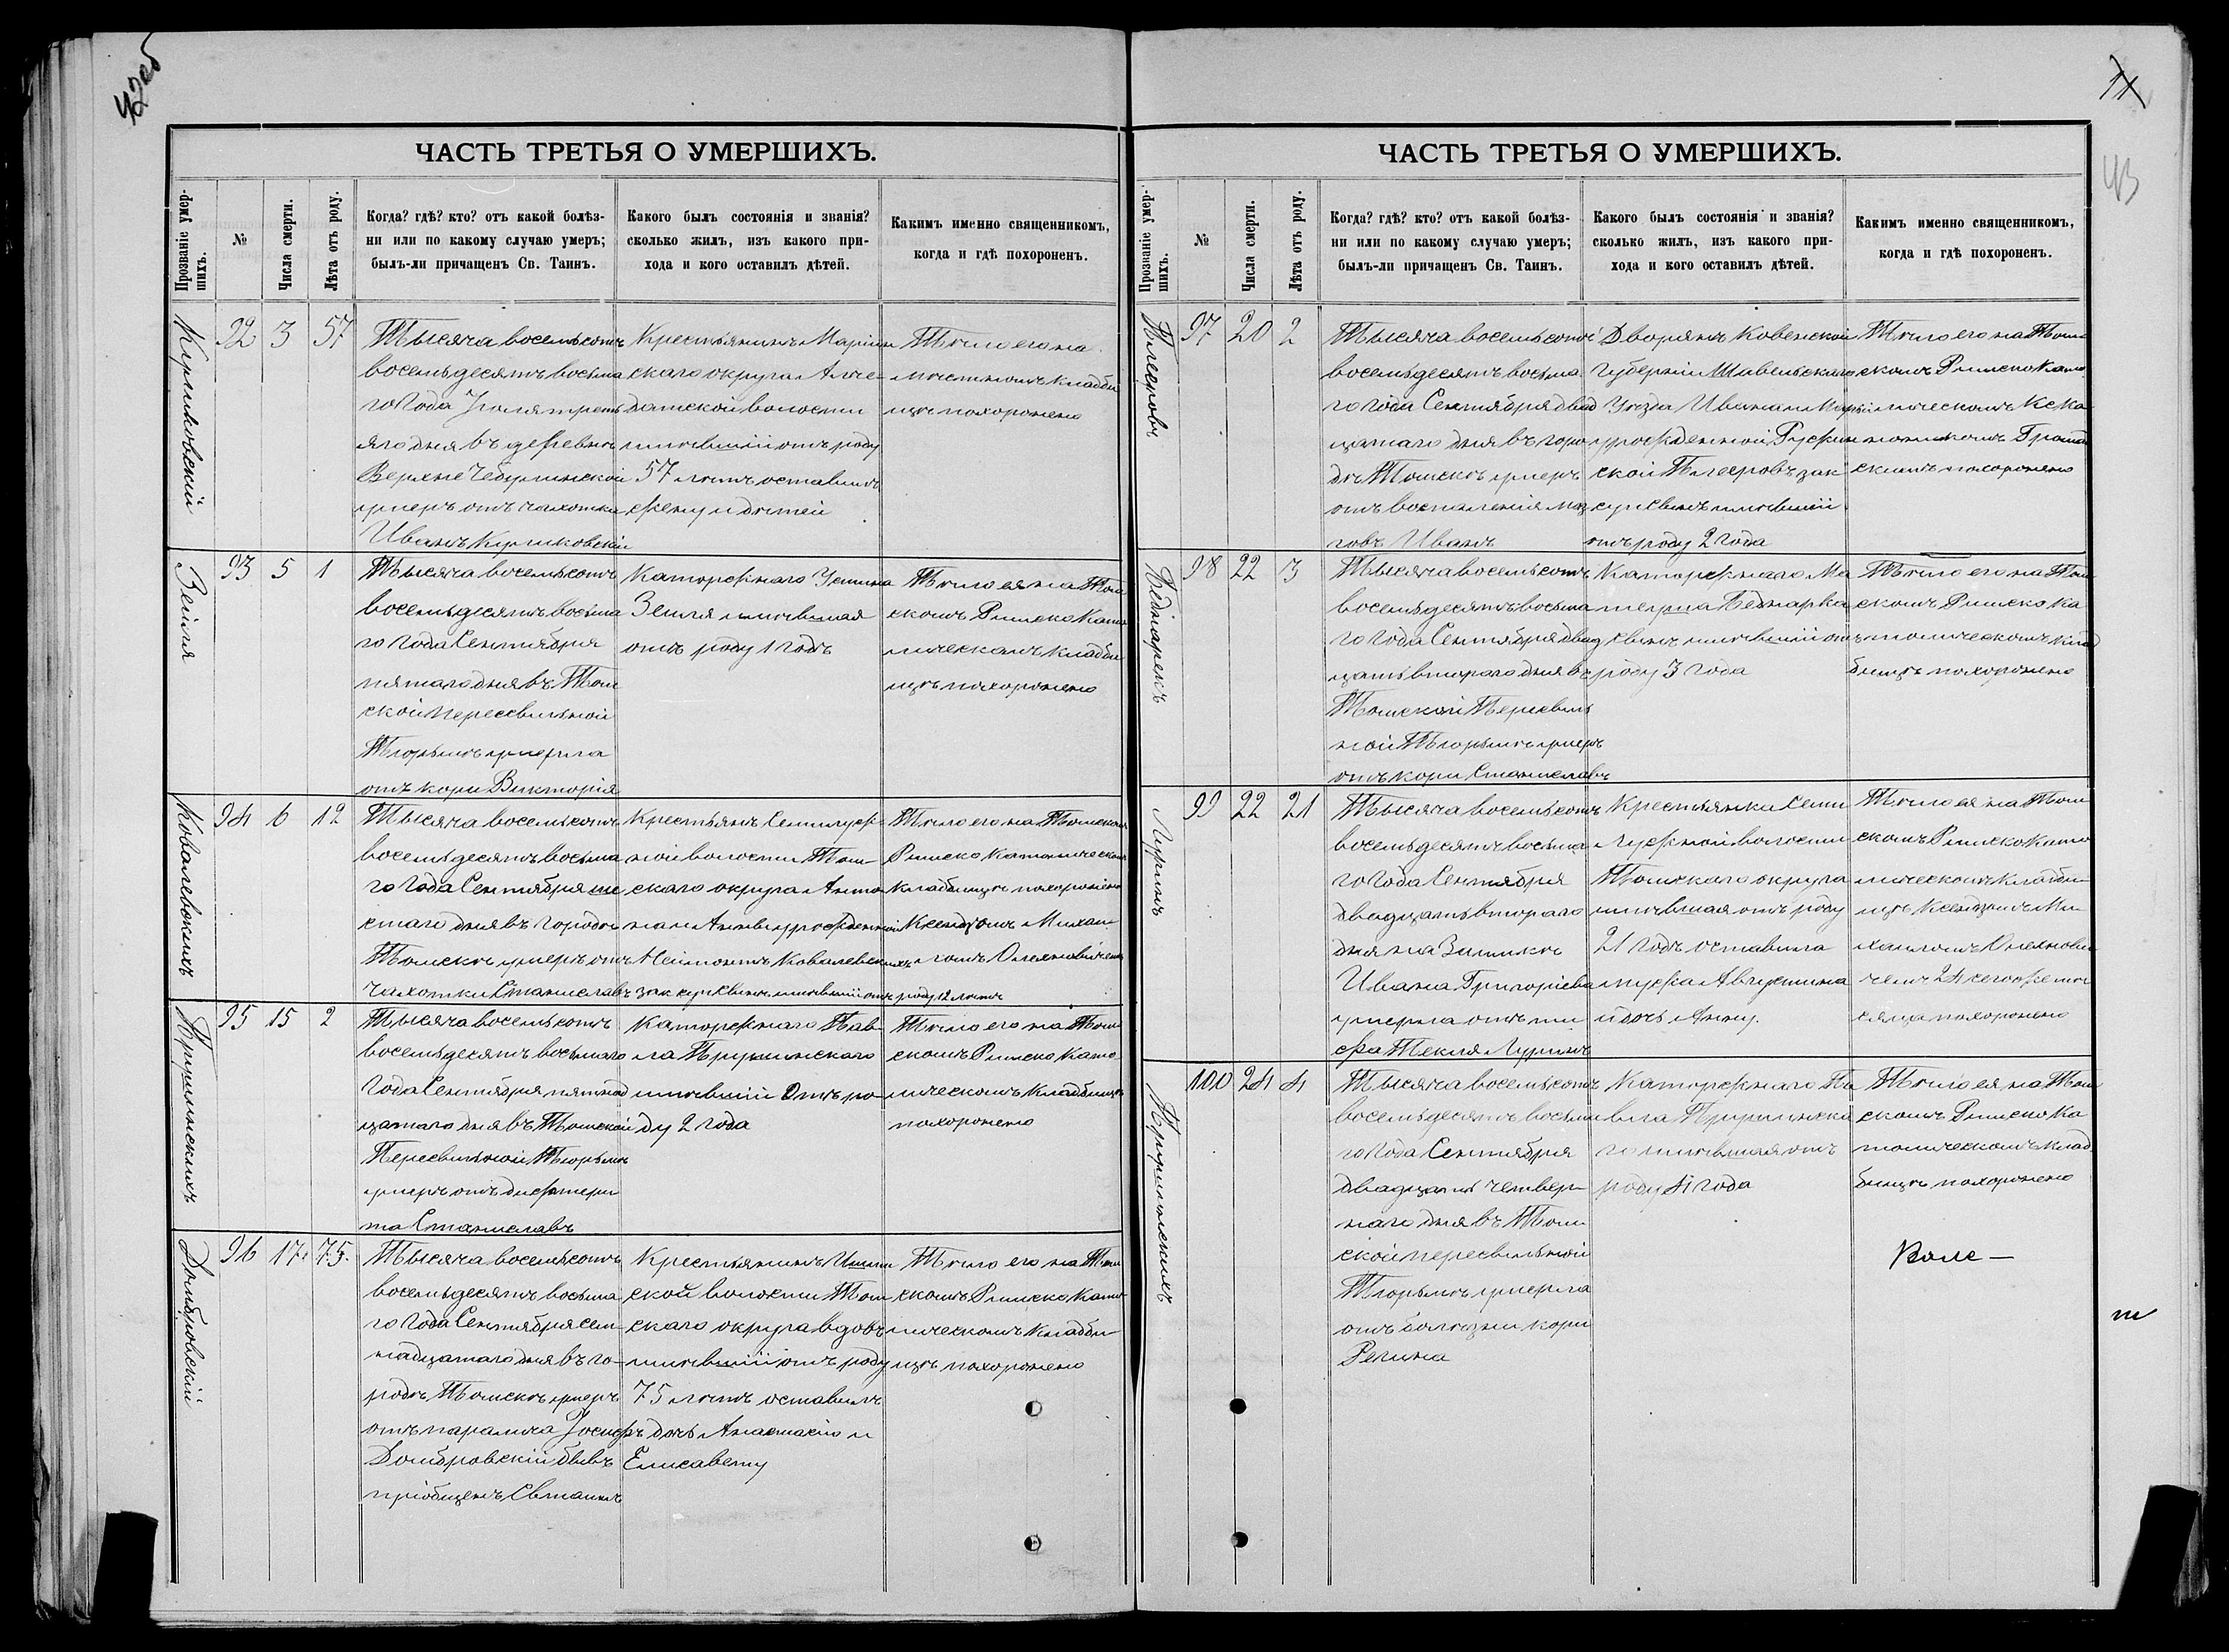 42об
ЧАСТЬ ТРЕТЬЯ О УМЕРШИХЪ.
Прозваніе умер-
шихъ.
№
Числа смерти.
Лѣта отъ роду.
Когда? гдѣ? кто? отъ какой болѣз-
ни или по какому случаю умеръ;
былъ-ли причащенъ Св. Таинъ.
Какого былъ состоянія и званія?
сколько жилъ, изъ какого при-
хода и кого оставилъ дѣтей.
Какимъ именно священникомъ,
когда и гдѣ похороненъ.
92 3 57
Тысяча восемьсотъ
восемьдесятъ восьма
го года Іюля треть
яго дня въ деревнѣ
Верхне Чебулинской
умеръ отъ чахотки
Иванъ
Крестьянинъ Маріин
скаго округа Алче-
датской волости
имѣвшій отъ роду
57 лѣтъ оставилъ
жену и дѣтей
Тѣло его на
мѣстномъ кладби
щѣ похоронено
Зейля
93 5 1
Тысяча восемьсотъ
восемьдесятъ восьма
го года Сентября
пятаго дня въ Том
ской пересыльной
Тюрьмѣ умерла
отъ кори Викторія
Каторжнаго
Зейля имѣвшая
отъ роду 1 годъ
Тѣло ея на Том
скомъ Римско Като
лическомъ кладби
щѣ похоронено
Ковалевскихъ
94 6 12
Тысяча восемьсотъ
восемьдесятъ восьма
го года Сентября ше
стаго дня въ городѣ
Томскѣ умеръ отъ
чахотки Станиславъ
Крестьянъ Семилуж
ной волости Том-
скаго округа Анто
на и Анны урожденной
Неймонтъ Ковалевскихъ
закон сынъ имѣвшій отъ роду 12 лѣтъ
Тѣло его на Томскомъ
Римско Католическомъ
Кладбищѣ похоронено
Ксендзомъ Михаи
ломъ Олехновичемъ
95 15 2
Тысяча восемьсотъ
восемьдесятъ восьмаго
года Сентября пятнад
цатаго дня въ Томской
Пересыльной Тюрьмѣ
умеръ отъ дифтери
та Станиславъ
Каторжнаго Пав
ла
имѣвшій отъ ро-
ду 2 года
Тѣло его на Том
скомъ Римско Като
лическомъ Кладбищѣ
похоронено
Домбровскій
96 17 75.
Тысяча восемьсотъ
восемьдесятъ восьма
го года Сентября сем-
надцатаго дня въ го-
родѣ Томскѣ умеръ
отъ паралича Іосифъ
Домбровскій бывъ
пріобщенъ Св таинъ
Крестьянинъ Ишим
ской волости Том
скаго округа вдовъ
имѣвшій отъ роду
75 лѣтъ оставилъ
дочь Анастасію и
Елисавету
Тѣло его на Том
скомъ Римско Като-
лическомъ Кладби-
щѣ похоронено
43
ЧАСТЬ ТРЕТЬЯ О УМЕРШИХЪ.
Прозваніе умер-
шихъ.
№
Числа смерти.
Лѣта отъ роду.
Когда? гдѣ? кто? отъ какой болѣз-
ни или по какому случаю умеръ;
былъ-ли причащенъ Св. Таинъ.
Какого былъ состоянія и званія?
сколько жилъ, изъ какого при-
хода и кого оставилъ дѣтей.
Какимъ именно священникомъ,
когда и гдѣ похороненъ.
97 20 2
Тысяча восемьсотъ
восемьдесятъ восьма
го года Сентября двад
цатаго дня въ горо
дѣ Томскѣ умеръ
отъ воспаленія моз
говъ Иванъ
Дворянъ Ковенской
Губерніи Шавельскаго
Уѣзда Ивана и Маріи
урожденной
имѣвшій
отъ роду 2 года
Тѣло его на Том
скомъ Римско Като
лическомъ
похоронено
Беднарекъ
98 22 3
Тысяча восемьсотъ
восемьдесятъ восьма
го года Сентября двад
цать втораго дня въ
Томской Пересыль
ной Тюрьмѣ умеръ
отъ кори Станиславъ
Каторжнаго Ма
теуша Беднарка
сынъ имѣвшій отъ
роду 3 года
Тѣло его на Том
скомъ Римско Ка
толическомъ клад
бищѣ похоронено
Луринъ
99 22 21
Тысяча восемьсотъ
восемьдесятъ восьма
го года Сентября
двадцать втораго
дня на Заимкѣ
Ивана Григоріева
умерла отъ ти
фа Текля Луринъ
Крестьянка Семи
лужной волости
Томскаго округа
имѣвшая отъ роду
21 годъ оставила
мужа Августина
и дочь Анну.
Тѣло ея на Том
скомъ Римско Като
лическомъ Кладби
щѣ Ксендзомъ Ми
хаиломъ Олехнови
чемъ 24 сего же мѣ
сяца похоронено
100 24 4
Тысяча восемьсотъ
восемьдесятъ восьма
го года Сентября
двадцать четверт
наго дня въ Том
ской пересыльной
Тюрьмѣ умерла
отъ болѣзни кори
Регина
Каторжнаго Па
вла
го имѣвшая отъ
роду 4 года
Тѣло ея на Том
скомъ Римско Ка
толическомъ клад
бищѣ похоронено